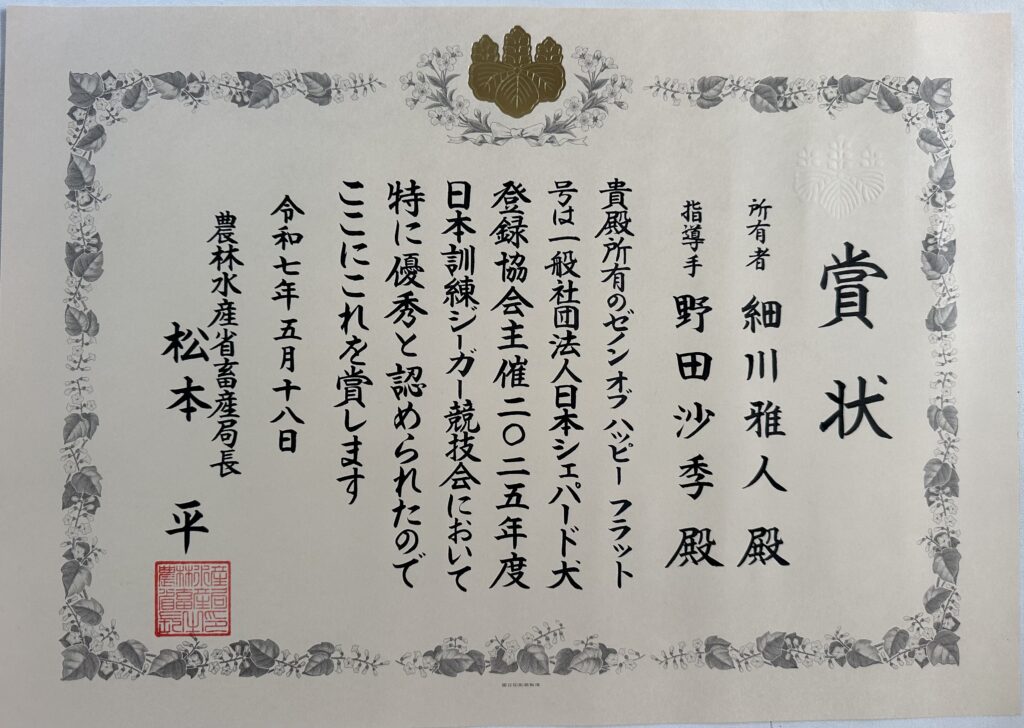 賞状
所有者 細川雅人殿
指導手 野田沙季殿
貴殿所有のゼノン オブ ハッピー フラット
号は一般社団法人日本シェパード犬
登録協会主催二〇二五年度
日本訓練ジーガー競技会において
特に優秀と認められたので
ここにこれを賞します
令和七年五月十八日
農林水産省畜産局長
松本 平